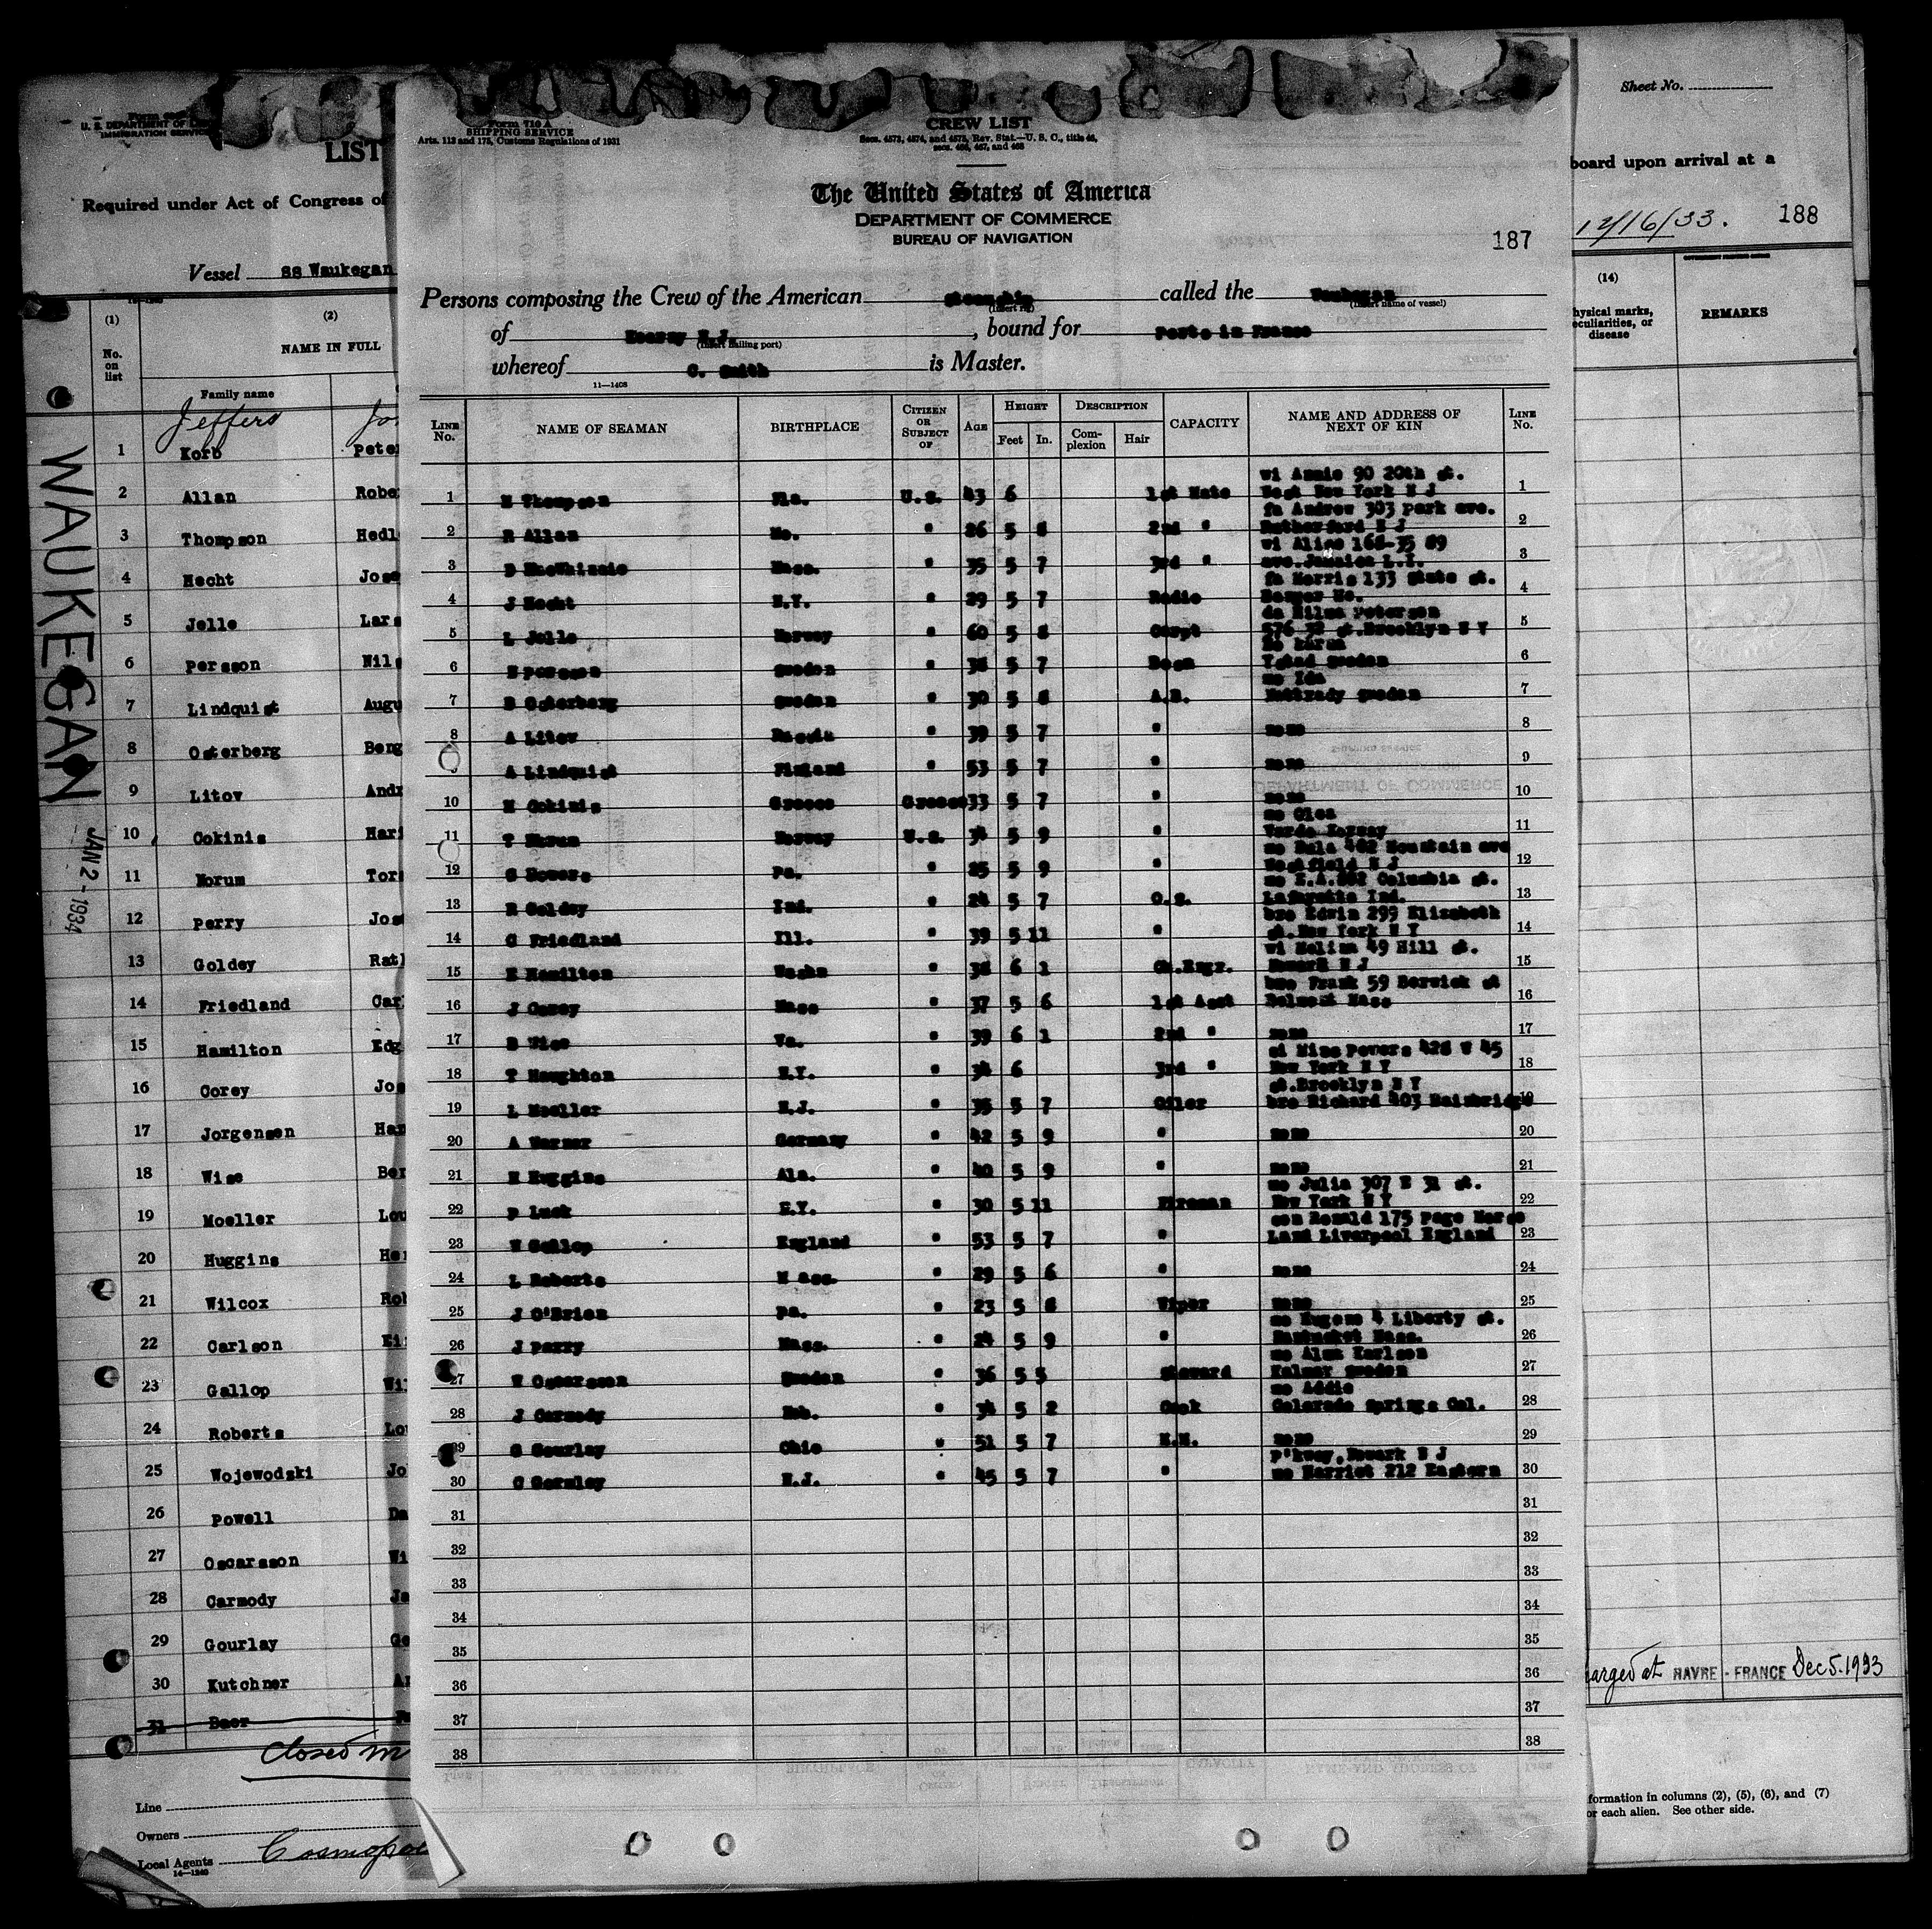 U. S. DEPARTMENT OF
IMMIGRATION SERVICE
LIST
Required under Act of Congress of
Vessel ss Waukegan
(1)
(2)
No. on list
NAME IN FULL
Family name
Jeffers Jo
1 Korb Pete
2 Allan Robe
3 Thompson Hedl
4 Hecht Jose
5 Jelle Lars
6 Persson Nils
7 Lindquist Augu
8 Osterberg Beng
9 Litov Andr
10 Cokinis Hari
11 Norum Tor
12 Perry Jos
13 Goldey Ral
14 Friedland Car
15 Hamilton Edg
16 Corey Jos
17 Jorgensen Han
18 Wise Ber
19 Moeller Lou
20 Huggins He
21 Wilcox Rob
22 Carlson Ei
23 Gallop Wil
24 Roberts Lo
25 Wojewodski Jo
26 Powell Da
27 Oscarsson Wi
28 Carmody Ja
29 Gourlay Ge
30 Kutchner Ar
31 Baer
Closed in
Line
Owners
Local Agents Cosmopol
14—1240
WAUKEGAN
JAN 2 - 1934
Form 710 A
SHIPPING SERVICE
Arts. 113 and 175, Customs Regulations of 1931
CREW LIST
Secs. 4573, 4574, and 4575, Rev. Stat.—U. S. C., title 46,
secs. 466, 467, and 468
The United States of America
DEPARTMENT OF COMMERCE
BUREAU OF NAVIGATION
187
Persons composing the Crew of the American steamship called the Waukegan
(Insert rig) (Insert name of vessel)
of Kearny N.J. , bound for Ports in France
(Insert hailing port)
whereof C. Smith is Master.
11—1408
LINE No. NAME OF SEAMAN BIRTHPLACE CITIZEN OR SUBJECT OF AGE HEIGHT Feet In. DESCRIPTION Complexion Hair CAPACITY NAME AND ADDRESS OF NEXT OF KIN LINE No.
wi Annie 90 20th st.
1 H Thompson Fla. U.S. 43 6 1st Mate West New York N J 1
fa Andrew 303 Park ave.
2 R Allan Mo. " 26 5 8 2nd " Rutherford N J 2
wi Alice 168-35 89
3 D MacWhinnie Mass. " 35 5 7 3rd " ave. Jamaica L.I. 3
fa Morris 133 State st.
4 J Hecht N.Y. " 29 5 7 Radio Bangor Me. 4
da Hilma Peterson
5 L Jelle Norway " 60 5 8 Carpt 576 st. Brooklyn N Y 5
6 N Persson Sweden " 38 5 7 Bosn Ystad Sweden 6
mo Ida
7 B Osterberg Sweden " 30 5 8 A.B. Sweden 7
8 A Litov Russia " 39 5 7 " none 8
A Lindquist Finland " 53 5 7 " none 9
10 H Cokinis Greece Greece 33 5 7 " none 10
mo Olea
11 T Norum Norway U.S. 34 5 9 " Norway 11
mo Eula 462 Mountain ave
12 G Bowers Pa. " 25 5 9 " Westfield N J 12
Columbia st.
13 R Goldey Ind. " 24 5 7 O.S. Lafayette Ind. 13
bro Edwin 299 Elizabeth
14 C Friedland Ill. " 39 5 11 " st. New York N Y 14
wi 49 Hill st.
15 E Hamilton Washn " 38 6 1 Ch.Engr. Newark N J 15
bro Frank 59 Berwick st
16 J Corey Mass " 37 5 6 1st Asst Belmont Mass 16
17 B Wise Va. " 39 6 1 2nd " none 17
si Mina Powers 428 W 45
18 T Naughton N.Y. " 34 6 3rd " New York N Y 18
st. Brooklyn N Y
19 L Moeller N.J. " 35 5 7 Oiler bro Richard 403 Bainbridge 19
20 A Warner Germany " 42 5 9 " none 20
21 H Huggins Ala. " 40 5 9 " none 21
mo Julia 307 E 31 st.
22 P Lusk N.Y. " 30 5 11 Fireman New York N Y 22
son Ronald 175 Page
23 W Gallop England " 53 5 7 " Land Liverpool England 23
24 L Roberts Mass. " 29 5 6 " none 24
25 J O'Brien Pa. " 23 5 8 Wiper none 25
mo Eugene 4 Liberty st.
26 J Perry Mass. " 24 5 9 " Nantucket Mass. 26
mo Alma Karlson
27 W Oscarsson Sweden " 36 5 5 Steward Kalmar Sweden 27
mo Addie
28 J Carmody Neb. " 34 5 2 Cook Colorado Springs Col. 28
29 G Gourlay Ohio " 51 5 7 M.M. none 29
P'kway, Newark N J
30 C Gormley N.J. " 45 5 7 " mo Harriet 212 Eastern 30
31 31
32 32
33 33
34 34
35 35
36 36
37 37
38 38
Sheet No.
board upon arrival at a
12/16/33.
188
(14)
hysical marks, eculiarities, or disease
REMARKS
harged at HAVRE - FRANCE Dec 5. 1933
formation in columns (2), (5), (6), and (7)
or each alien. See other side.